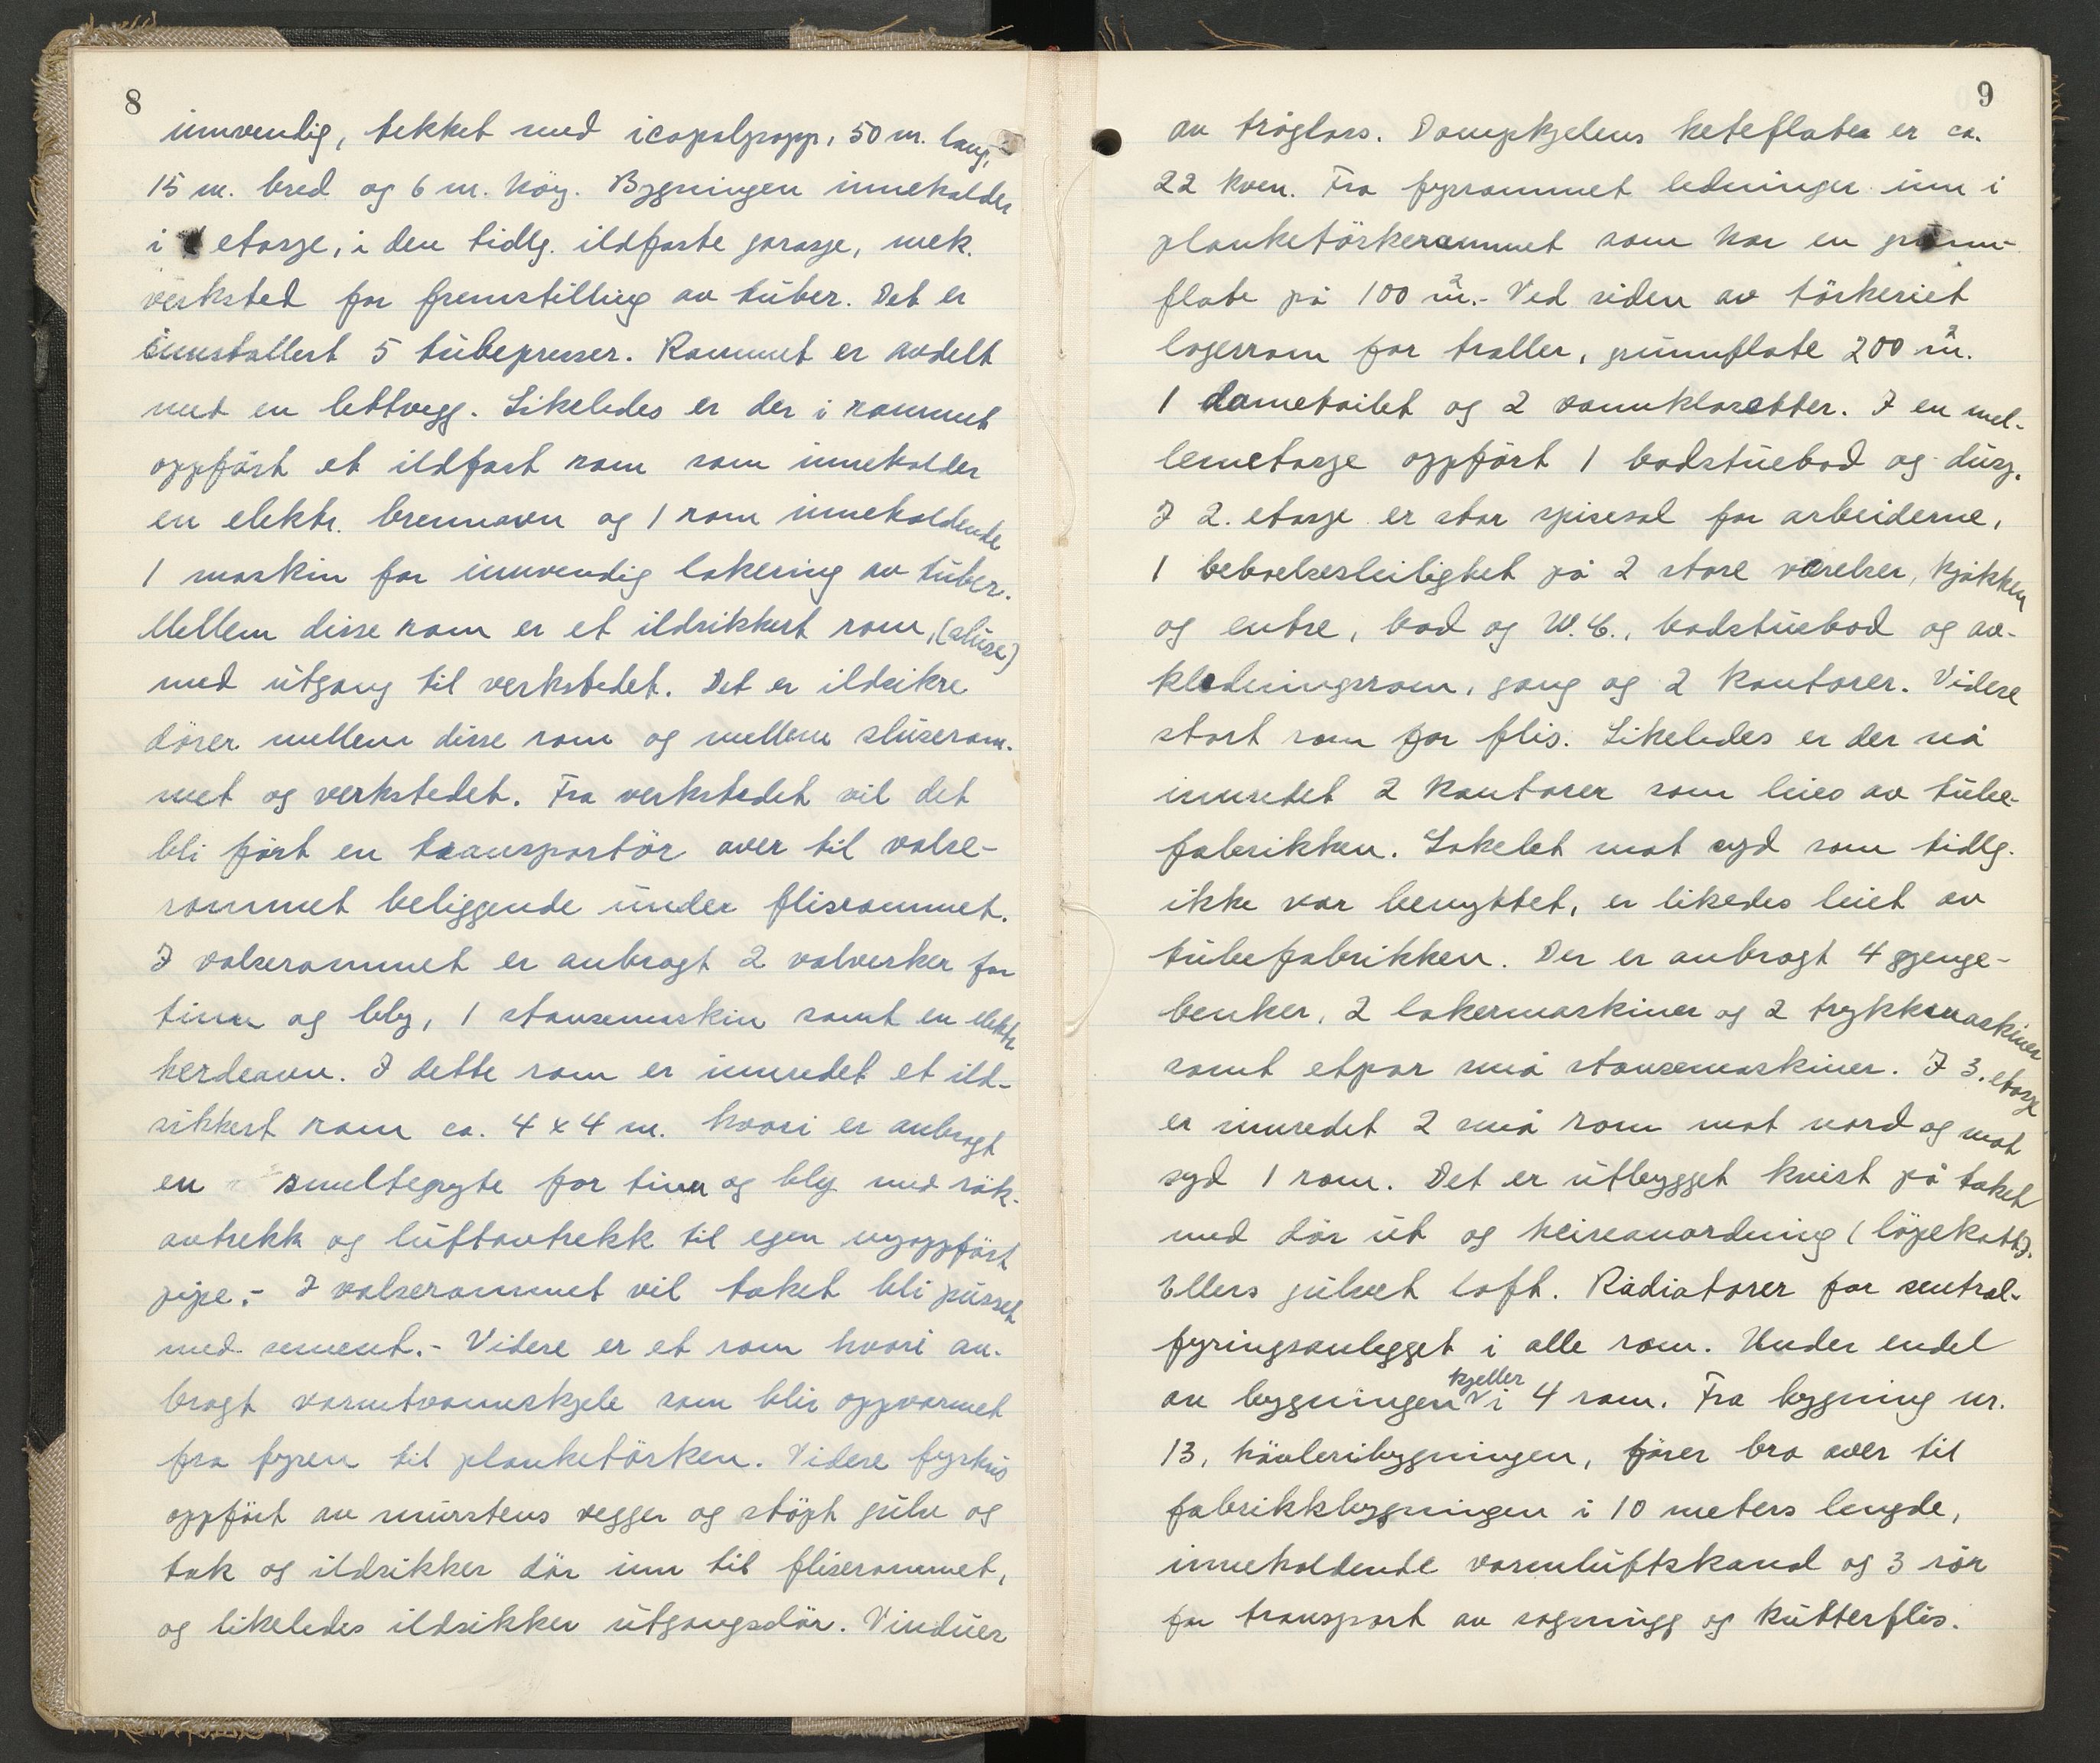 8
innvendig, tekket med icopalpapp, 50 m. lang,
15 m. bred og 6 m. höy. Bygningen inneholder
i etasje, i den tidlg. ildfaste garasje, mek.
verksted for fremstilling av tuber. Det er
innstallert 5 tubepresser. Rommet er avdelt
med en lettvegg. Likeledes er der i rommet
oppfört et ildfast rom som inneholder
en elektr. brennovn og 1 rom inneholdende
1 maskin for innvendig lakering av tuber.
Mellem disse rom er et ildsikkert rom, (sluse)
med utgang til verkstedet. Det er ildsikre
dörer mellem disse rom og mellem sluserom-
met og verkstedet. Fra verkstedet vil det
bli fört en transportör over til valse-
rommet beliggende under flisrommet.
I valserommet er anbragt 2 valverker for
tinn og bly, 1 stansemaskin samt en elektr.
herdeovn. I dette rom er innredet et ild-
sikkert rom ca. 4 x 4 m. hvori er anbragt
en smeltegryte for tinn og bly med rök-
avtrekk og luftavtrekk til egen nyoppfört
pipe.- I valserommet vil taket bli pusset
med sement.- Videre er et rom hvori an-
bragt varmtvannskjele som blir oppvarmet
fra fyren til planketörken. Videre fyrhus
oppfört av murstens vegger og stöpt gulv og
tak og ildsikker dör inn til fliserommet,
og likeledes ildsikker utgangsdör. Vinduer
9
av tråglass. Dampkjelens heteflate er ca.
22 kvm. Fra fyrrommet ledninger inn i
planketörkerummet som har en grunn-
flate på 100 m².- Ved siden av törkeriet
lagerrom for traller, grunnflate 200 m².
1 dametoilet og 2 vannklosetter. I en mel-
lemetasje oppfört 1 badstuebad og dusj.
I 2. etasje er stor spisesal for arbeiderne,
1 beboelsesleilighet på 2 store værelser, kjökken
og entre, bad og W.C., badstuebad og av-
kledningsrom, gang og 2 kontorer. Videre
stort rom for flis. Likeledes er der nå
innredet 2 kontorer som leies av tube-
fabrikken. Lokalet mot syd som tidlg.
ikke var benyttet, er likedes leiet av
tubefabrikken. Der er anbragt 4 gjenge-
benker, 2 lakermaskiner og 2 trykkmaskiner
samt etpar små stansemaskiner. I 3. etasje
er innredet 2 små rom mot nord og mot
syd 1 rom. Det er utbygget kvist på taket
med dör ut og heiseanordning (löpekatt).
Ellers gulvet loft. Radiatorer for sentral-
fyringsanlegget i alle rom. Under endel
av bygningen kjeller i 4 rom. Fra bygning nr.
13, hövleribygningen, förer bro over til
fabrikkbygningen i 10 meters lengde,
inneholdende varmluftskanal og 3 rör
for transport av sagmugg og kutterflis.